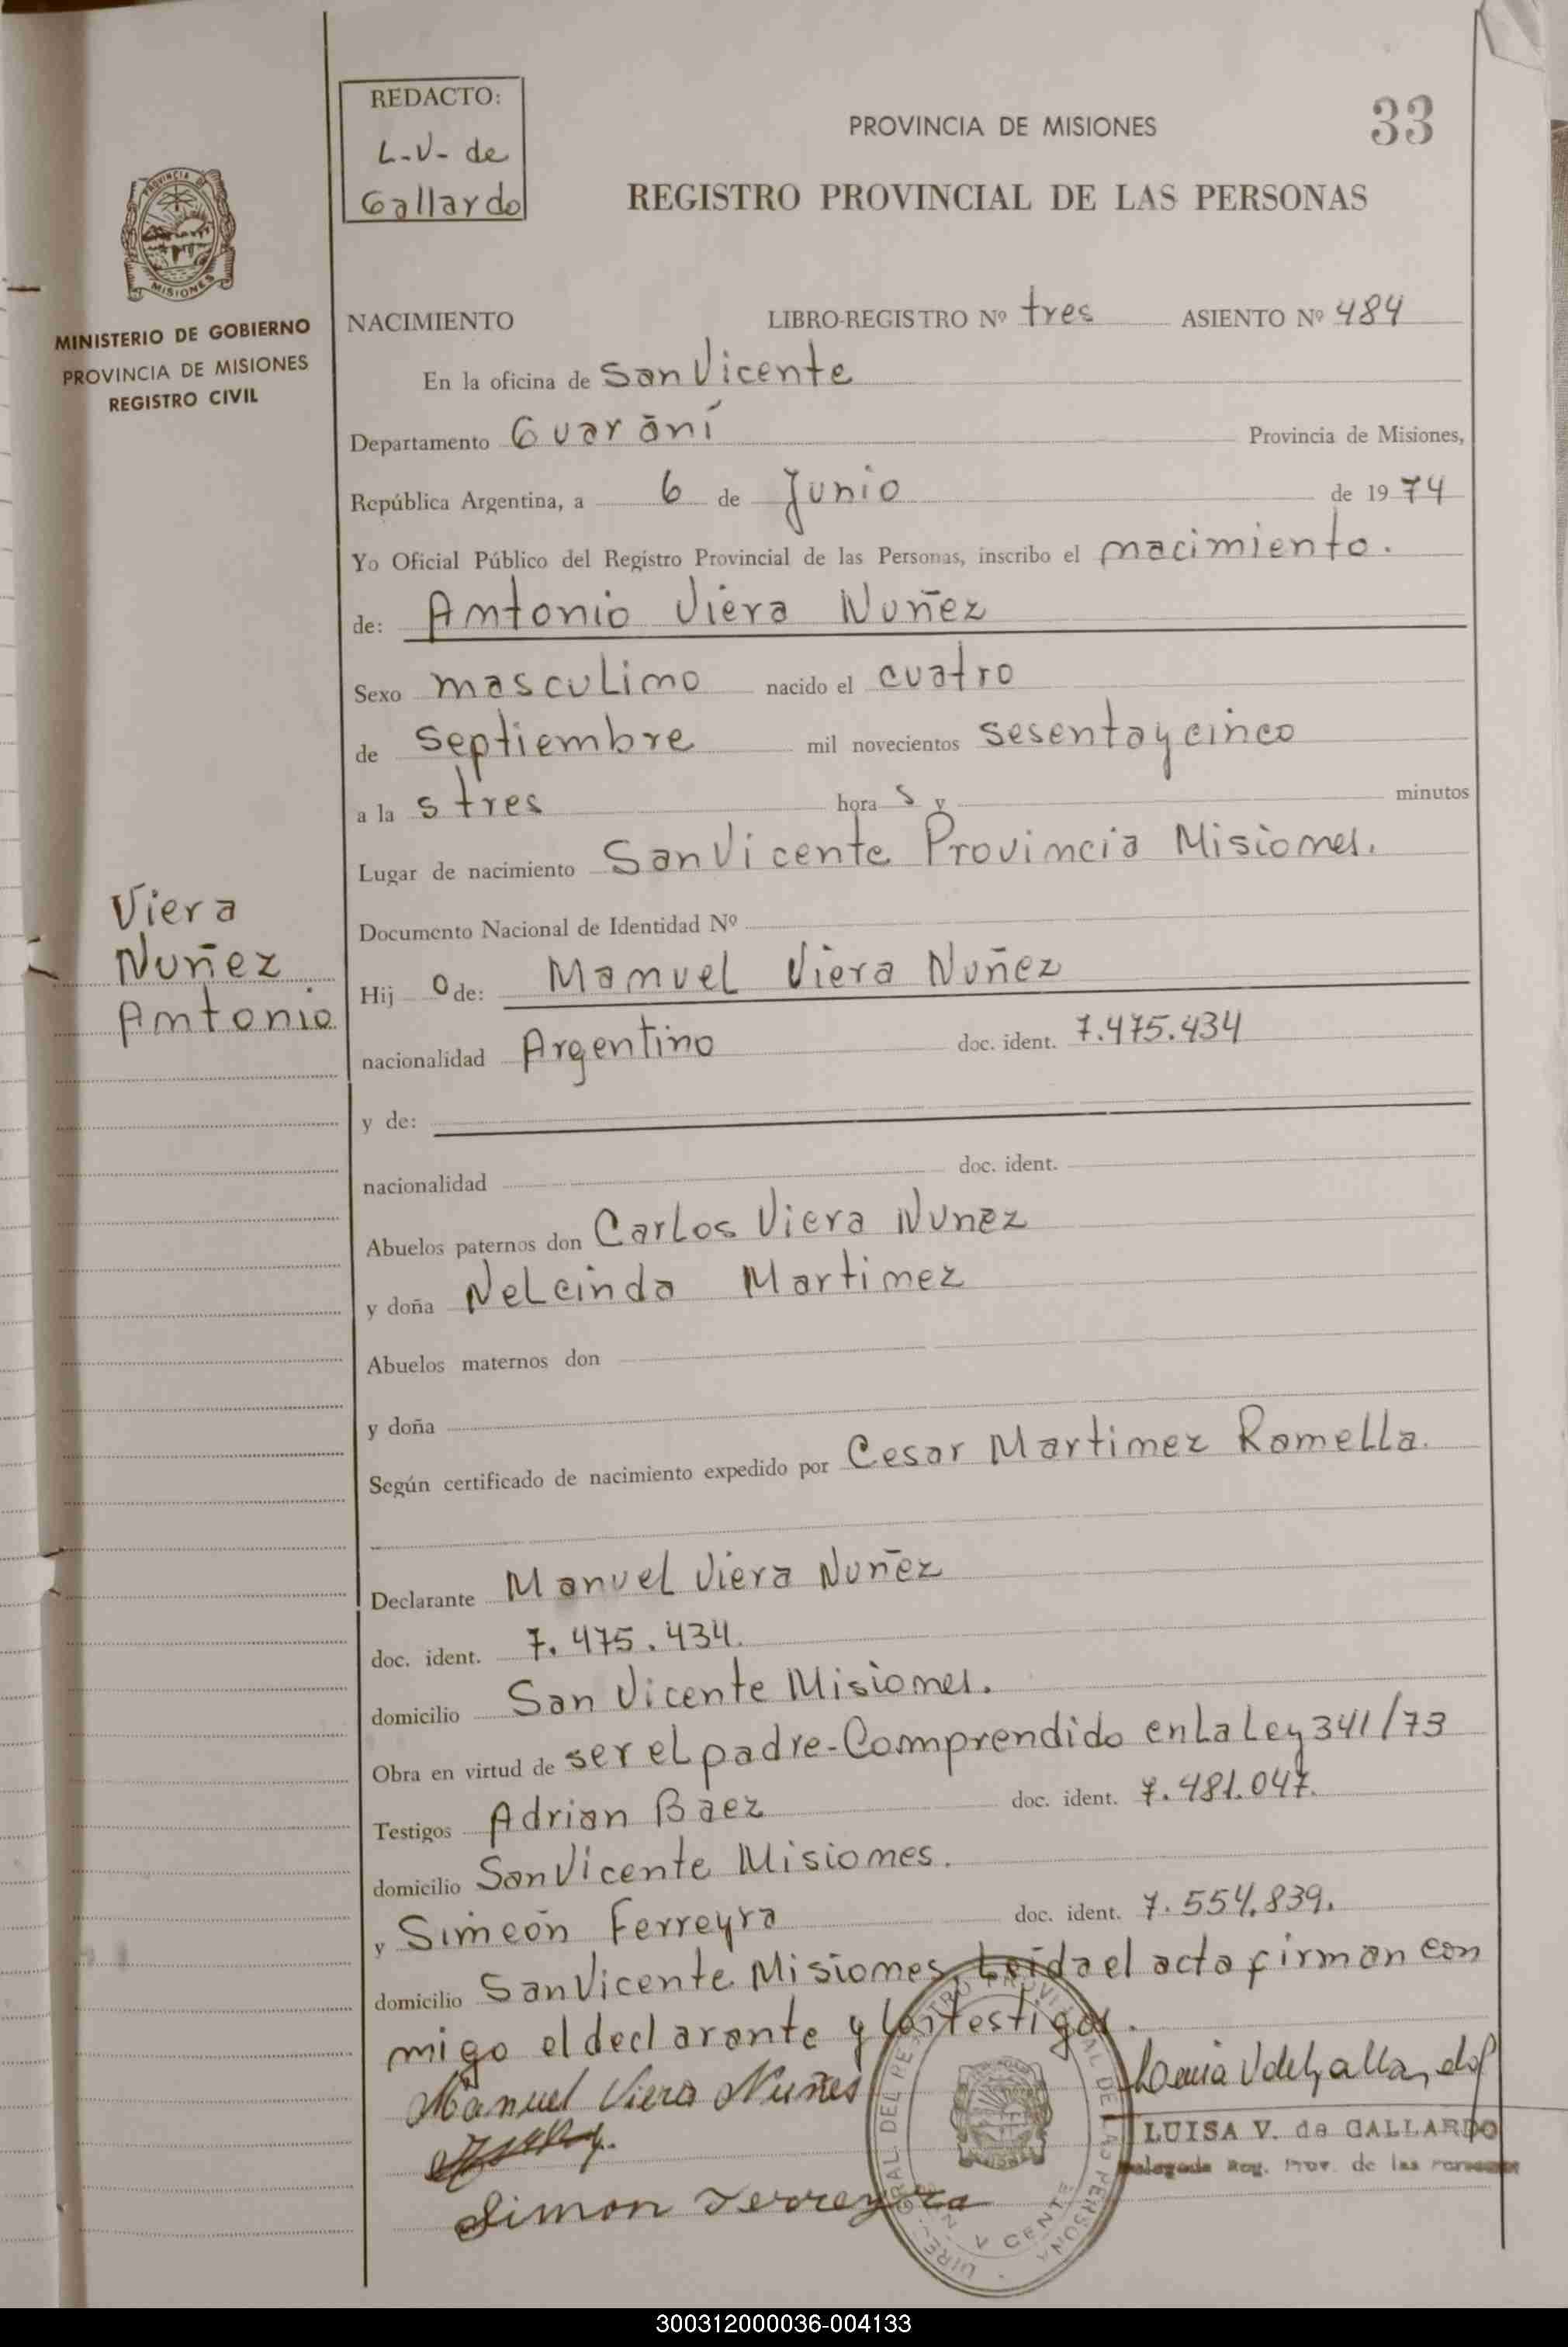 REDACTO:
L-V- de
Gallardo
PROVINCIA DE MISIONES
33
REGISTRO PROVINCIAL DE LAS PERSONAS
PROVINCIA DE
MISIONES
MINISTERIO DE GOBIERNO
PROVINCIA DE MISIONES
REGISTRO CIVIL
NACIMIENTO LIBRO-REGISTRO Nº tres ASIENTO Nº 484
En la oficina de San Vicente
Departamento Guarāní Provincia de Misiones,
República Argentina, a 6 de Junio de 19 74
Yo Oficial Público del Registro Provincial de las Personas, inscribo el nacimiento.
de: Antonio Viera Nuñez
Sexo masculino nacido el cuatro
de septiembre mil novecientos sesenta y cinco
a la s tres hora s y minutos
Lugar de nacimiento San Vicente Provincia Misiones.
Documento Nacional de Identidad Nº
Viera
Nuñez
Antonio
Hij o de: Manuel Viera Nuñez
nacionalidad Argentino doc. ident. 7.475.434
y de:
nacionalidad doc. ident.
Abuelos paternos don Carlos Viera Nunez
y doña Nelcinda Martinez
Abuelos maternos don
y doña
Según certificado de nacimiento expedido por Cesar Martinez Ramella.
Declarante Manuel Viera Nuñez
doc. ident. 7.475.434.
domicilio San Vicente Misiones.
Obra en virtud de ser el padre-Comprendido en la Ley 341/73
Testigos Adrian Baez doc. ident. 7.481.047.
domicilio San Vicente Misiones.
y Simeón Ferreyra doc. ident. 7.554.839.
domicilio San Vicente Misiones, Leida el acta firman con
migo el declarante y los testigos.
Manuel Viera Nuñes
Simon Ferreyra
LUISA V. de GALLARDO
Delegada Reg. Prov. de las Personas
300312000036-004133